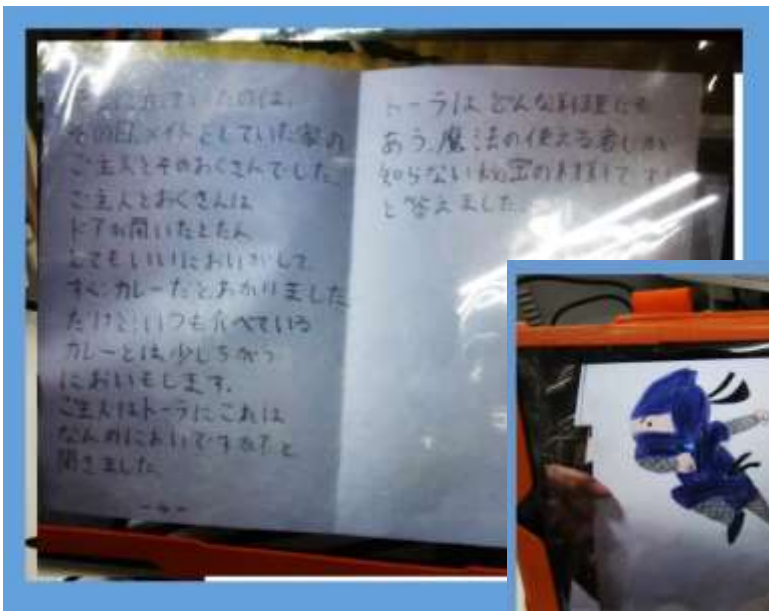 れていたのは、
その日、メイドとしていた家の
ご主人とそのおくさんでした。
ご主人とおくさんは
ドアが開いたとたん
とてもいいにおいがして
すぐカレーだとわかりました
だけど、いつも食べている
カレーとは少しちがう
においもします。
ご主人はトーラにこれは
なんのにおいですかと
聞きました
トーラはどんな料理にも
あう、魔法の使える者しか
知らない秘密の材料です
と答えました。